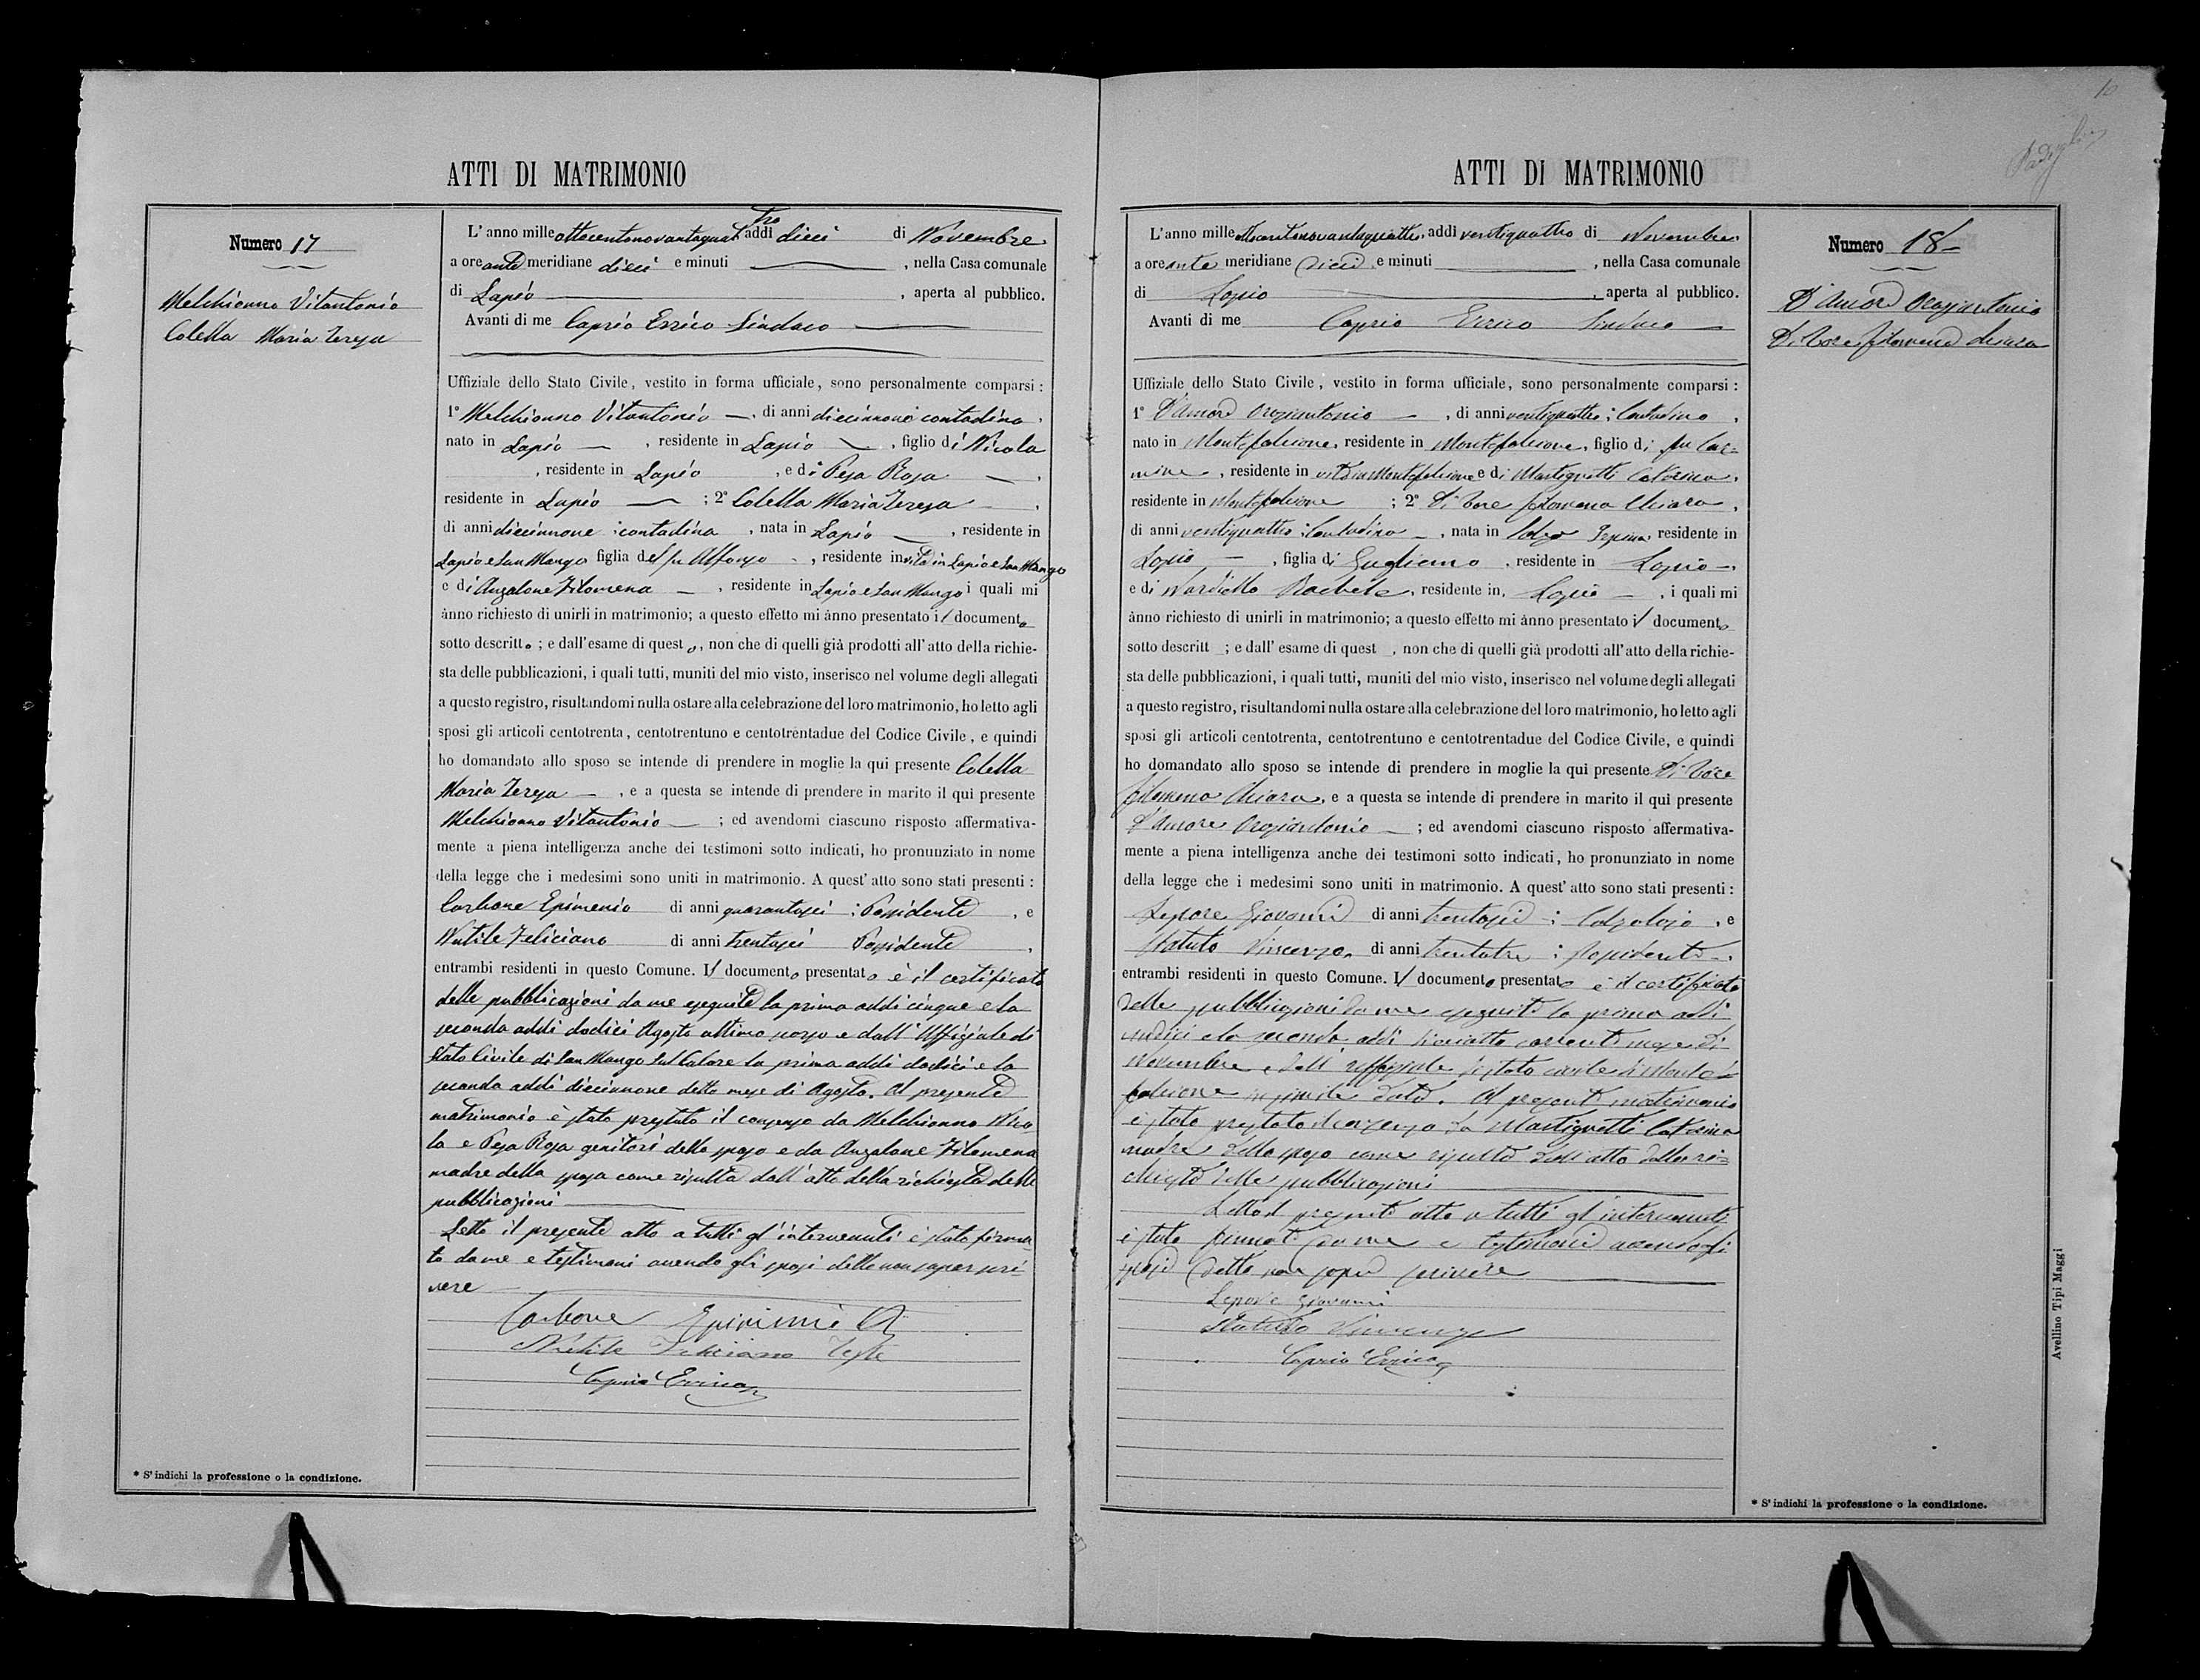 ATTI DI MATRIMONIO
Numero 17
Melchionno Vitantonio
Colella Maria Teresa
L' anno mille ottocentonovantaquattro addì dieci di Novembre
a ore anti meridiane dieci e minuti , nella Casa comunale
di Lapio , aperta al pubblico.
Avanti di me Caprio Errico Sindaco
Uffiziale dello Stato Civile, vestito in forma ufficiale, sono personalmente comparsi :
1° Melchionno Vitantonio , di anni diecinnove contadino ,
nato in Lapio , residente in Lapio , figlio di Nicola
, residente in Lapio , e di Pesa Rosa ,
residente in Lapio ; 2° Colella Maria Teresa ,
di anni diecinnove : contadina , nata in Lapio , residente in
Lapio e San Mango figlia del fu Alfonso , residente in vita in Lapio e San Mango
e di Anzalone Filomena , residente in Lapio e San Mango i quali mi
ànno richiesto di unirli in matrimonio; a questo effetto mi ànno presentato il documento
sotto descritto ; e dall' esame di questo, non che di quelli già prodotti all' atto della richie-
sta delle pubblicazioni, i quali tutti, muniti del mio visto, inserisco nel volume degli allegati
a questo registro, risultandomi nulla ostare alla celebrazione del loro matrimonio, ho letto agli
sposi gli articoli centotrenta, centotrentuno e centotrentadue del Codice Civile, e quindi
ho domandato allo sposo se intende di prendere in moglie la qui presente Colella
Maria Teresa , e a questa se intende di prendere in marito il qui presente
Melchionno Vitantonio ; ed avendomi ciascuno risposto affermativa-
mente a piena intelligenza anche dei testimoni sotto indicati, ho pronunziato in nome
della legge che i medesimi sono uniti in matrimonio. A quest' atto sono stati presenti :
Carbone Epimenio di anni quarantasei : Possidente , e
Nutile Feliciano di anni trentasei Possidente ,
entrambi residenti in questo Comune. Il documento presentato è il certificato
delle pubblicazioni da me eseguite la prima addì cinque e la
seconda addì dodici Agosto ultimo scorso e dall' Uffiziale di
Stato Civile di San Mango sul Calore la prima addì dodici e la
seconda addì diecinnove detto mese di Agosto. Al presente
matrimonio è stato prestato il consenso da Melchionno Nico-
la e Pesa Rosa genitori dello sposo e da Anzalone Filomena
madre della sposa come risulta dall' atto della richiesta delle
pubblicazioni
Letto il presente atto a tutti gl' intervenuti è stato firma-
to da me e testimoni avendo gli sposi detto non saper scri-
vere
Carbone
Nutile Feliciano Teste
Caprio Errico
* S' indichi la professione o la condizione.
10
ATTI DI MATRIMONIO
L' anno mille ottocentonovantaquattro, addì ventiquattro di Novembre
a ore anti meridiane dieci e minuti , nella Casa comunale
di Lapio , aperta al pubblico.
Avanti di me Caprio Errico Sindaco
Numero 18
D' Amore Oraziantonio
Di Tore Filomena Chiara
Uffiziale dello Stato Civile, vestito in forma ufficiale, sono personalmente comparsi :
1° D' Amore Oraziantonio , di anni ventiquattro : Contadino ,
nato in Montefalcione, residente in Montefalcione, figlio di fu Car-
mine , residente in vita in Montefalcione e di Martignetti Caterina,
residente in Montefalcione ; 2° Di Tore Filomena Chiara ,
di anni ventiquattro : Contadina , nata in Irpina, residente in
Lapio , figlia di Gugliemo , residente in Lapio ,
e di Nardiello Rachele , residente in, Lapio , i quali mi
ànno richiesto di unirli in matrimonio; a questo effetto mi ànno presentato il documento
sotto descritt ; e dall' esame di quest , non che di quelli già prodotti all' atto della richie-
sta delle pubblicazioni, i quali tutti, muniti del mio visto, inserisco nel volume degli allegati
a questo registro, risultandomi nulla ostare alla celebrazione del loro matrimonio, ho letto agli
sposi gli articoli centotrenta, centotrentuno e centotrentadue del Codice Civile, e quindi
ho domandato allo sposo se intende di prendere in moglie la qui presente Di Tore
Filomena Chiara, e a questa se intende di prendere in marito il qui presente
D' Amore Oraziantonio ; ed avendomi ciascuno risposto affermativa-
mente a piena intelligenza anche dei testimoni sotto indicati, ho pronunziato in nome
della legge che i medesimi sono uniti in matrimonio. A quest' atto sono stati presenti :
Lepore Giovanni di anni trentasei : Calzolajo , e
Statuto Vincenzo, di anni trentatre : Possidente ,
entrambi residenti in questo Comune. Il documento presentato è il certificato
delle pubblicazioni da me eseguite la prima addì
undici e la seconda addì diciotto corrente mese di
Novembre e dall' uffiziale di stato civile di Monte-
falcione in simile data. Al presente matrimonio
è stato prestato il consenso da Martignetti Caterina
madre dello sposo come risulta dall' atto della ri-
chiesta delle pubblicazioni
Letto il presente atto a tutti gl' intervenuti
è stato firmato da me e testimoni avendo gli
sposi detto non saper scrivere
Lepore Giovanni
Statuto Vincenzo
Caprio Errico
* S' indichi la professione o la condizione.
Avellino Tipi Maggi